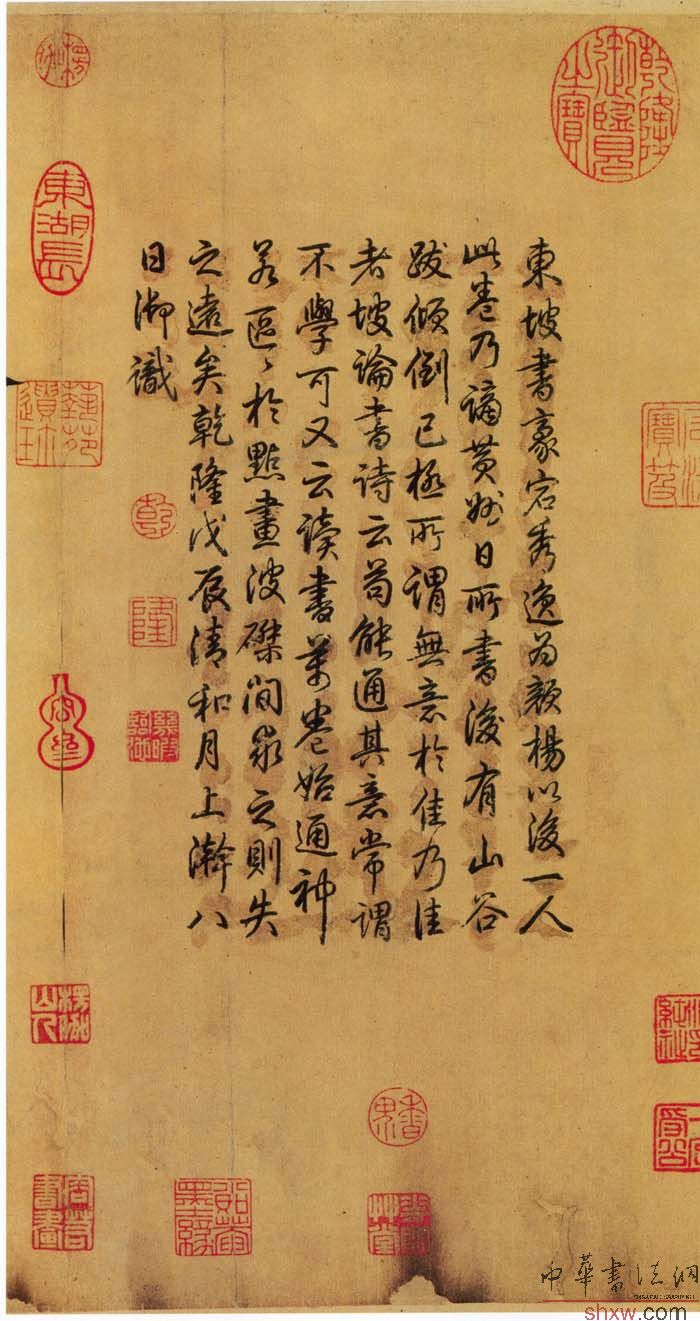 東坡書豪宕秀逸為顏楊以後一人
此卷乃謫黃州日所書後有山谷
跋傾倒已極所謂無意於佳乃佳
者坡論書詩云苟能通其意常謂
不學可又云讀書萬卷始通神
若區〻於點畫波磔間求之則失
之遠矣乾隆戊辰清和月上澣八
日御識
乾隆御覽之寶
東湖長
乾
隆
中華書法網
shxw.com